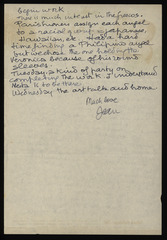 begin work
There is much interest in the frescos.
Parishoners assign each angel
to a racial group - Japanese,
Hawaiian, etc. Had a hard
time finding a Philipino angel
but we chose the one holding the
Veronica because of his
sleeves.
Tuesday a kind of party on
completing the work I understand
is to be there
Wednesday the art talk and home
Much love
Jean